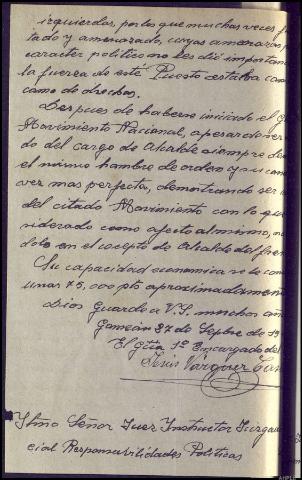 izquierdas, por los que muchas veces f
tado y amenazado, cuyas amenazas p
carácter politico no les dió importan
la fuerza de este Puesto estaba con
como de drechas.
Despues de haberse iniciado el g
Movimiento Nacional, apesar de ser
do del cargo de Alcalde siempre de
el mismo hombre de orden y su con
ver mas perfecta, demostrando ser
del citado Movimiento con lo que
siderado como afecto al mismo, no
dolo en el cocepto de Alcalde del fren
Su capacidad economica se le con
unas 75,000 pts aproximadamente
Dios Guarde a V.S. muchos añ
27 de Sepbre de 19
El Gdia 1º Encargado del
Jesús Vázquez
Iltmo Señor Juez Instructor Juzga
cial Responsabilidades Politicas